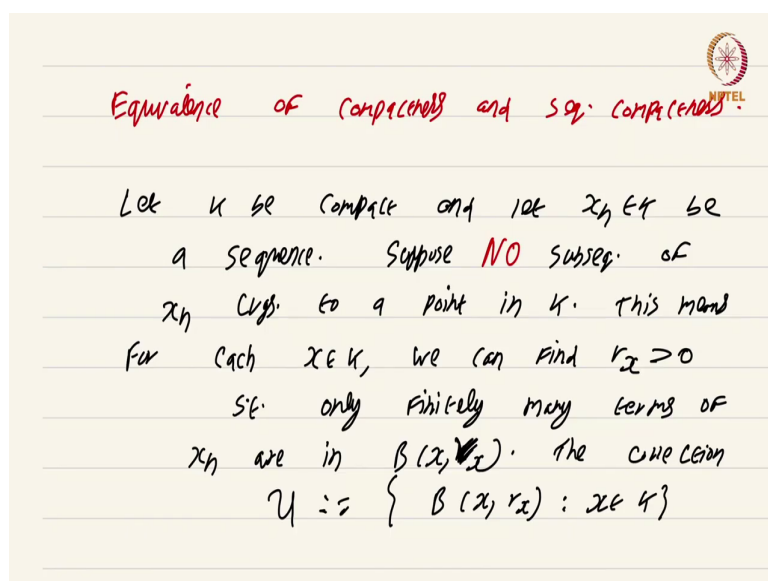 Equivalence of compactness and seq. compactness.
NPTEL
Let K be compact and let xₙ ∈ K be
a sequence. Suppose NO subseq. of
xₙ cvgs. to a point in K. This means
For each x ∈ K, we can find rₓ > 0
s.t. only finitely many terms of
xₙ are in B(x, rₓ). The collection
U := { B(x, rₓ) : x ∈ K }